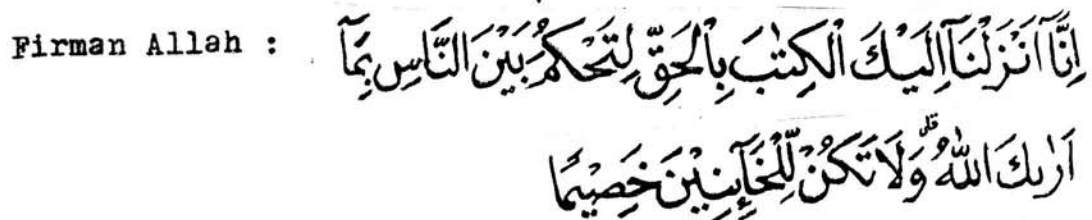 Firman Allah : اِنَّآ اَنْزَلْنَآ اِلَيْكَ الْكِتٰبَ بِالْحَقِّ لِتَحْكُمَ بَيْنَ النَّاسِ بِمَآ
اَرٰىكَ اللّٰهُ ۗ وَلَا تَكُنْ لِّلْخَآىِٕنِيْنَ خَصِيْمًا